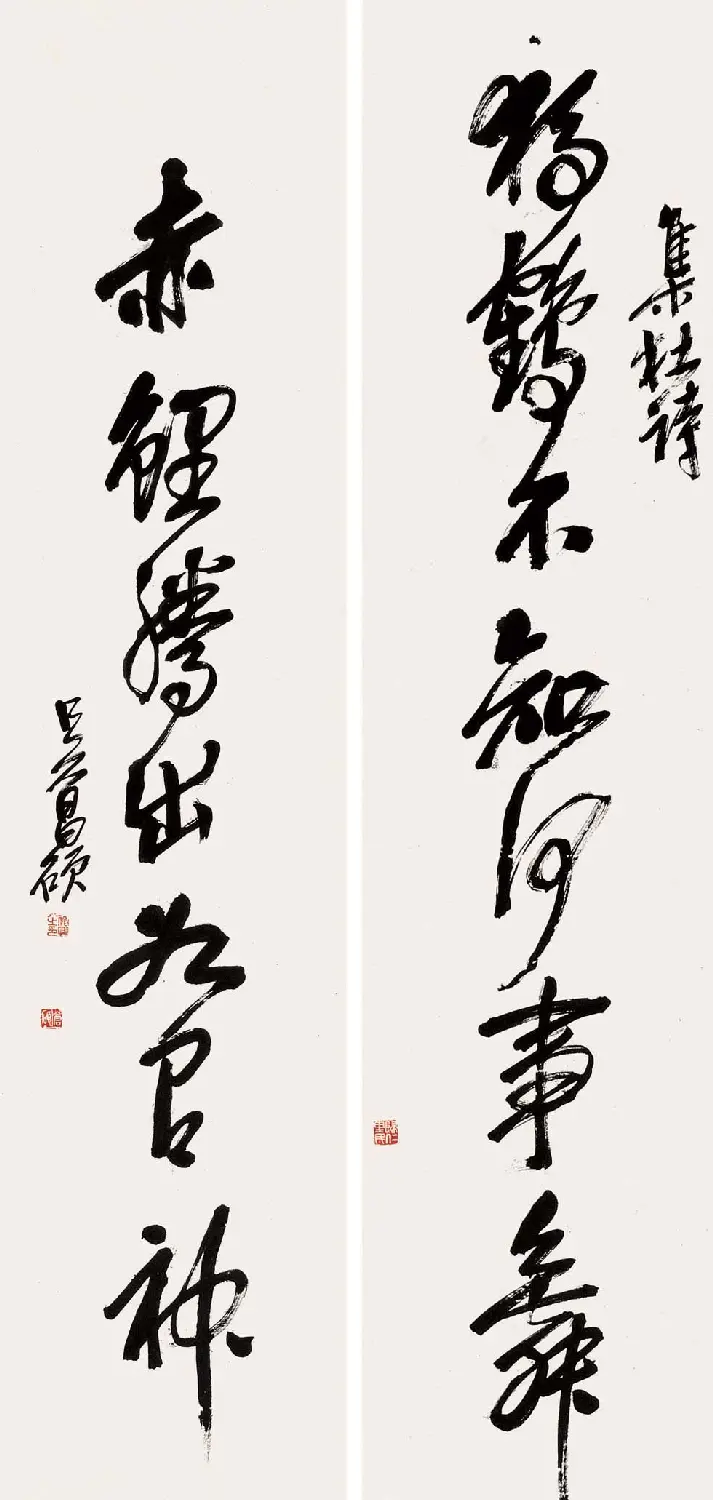 集杜詩
獨鶴不知何事舞
赤鯉騰出如有神
吳昌碩